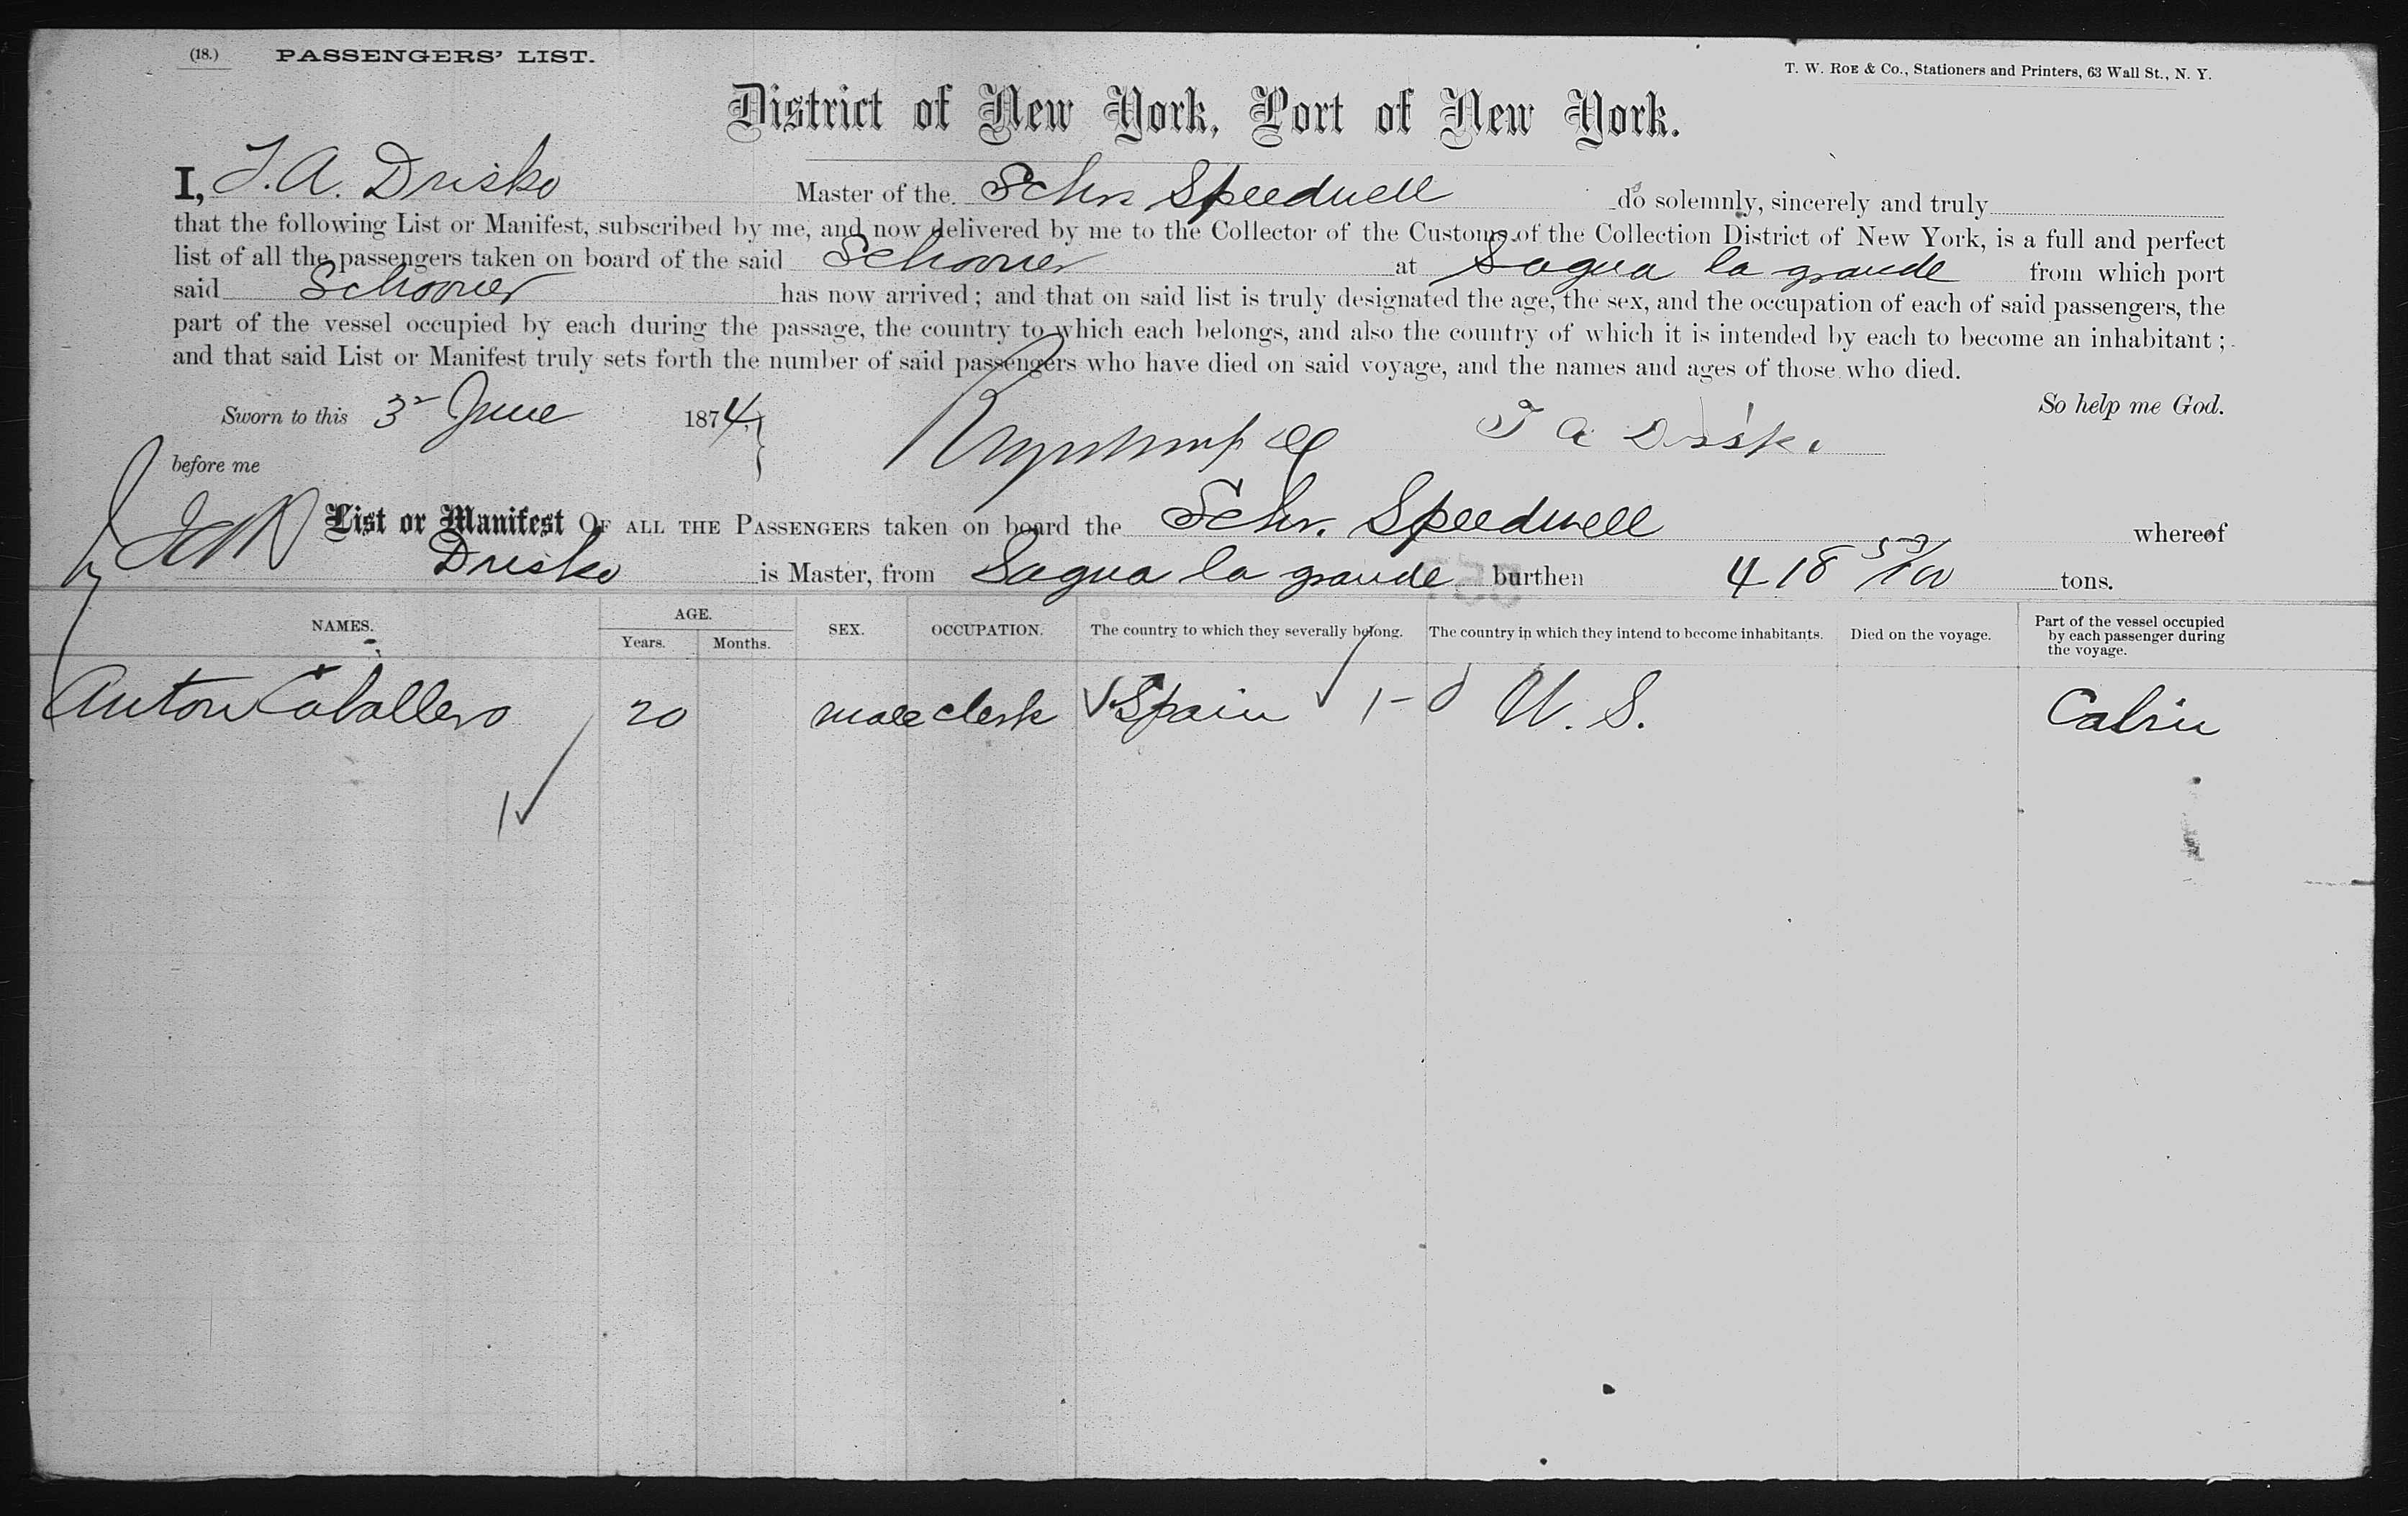 (18.) PASSENGERS' LIST.
T. W. ROE & CO., Stationers and Printers, 63 Wall St., N. Y.
District of New York, Port of New York.
I, T. A. Drisko Master of the Schr Speedwell do solemnly, sincerely and truly
that the following List or Manifest, subscribed by me, and now delivered by me to the Collector of the Customs of the Collection District of New York, is a full and perfect
list of all the passengers taken on board of the said Schooner at Sagua la grande from which port
said Schooner has now arrived; and that on said list is truly designated the age, the sex, and the occupation of each of said passengers, the
part of the vessel occupied by each during the passage, the country to which each belongs, and also the country of which it is intended by each to become an inhabitant;
and that said List or Manifest truly sets forth the number of said passengers who have died on said voyage, and the names and ages of those who died.
So help me God.
Sworn to this 3 June 1874,
T A Drisko
before me
List or Manifest OF ALL THE PASSENGERS taken on board the Schr. Speedwell whereof
Drisko is Master, from Sagua la grande burthen 418 tons.
NAMES. AGE. Years. Months. SEX. OCCUPATION. The country to which they severally belong. The country in which they intend to become inhabitants. Died on the voyage. Part of the vessel occupied by each passenger during the voyage.
Anton Caballero 20 male clerk Spain 1 - U. S. Cabin
1